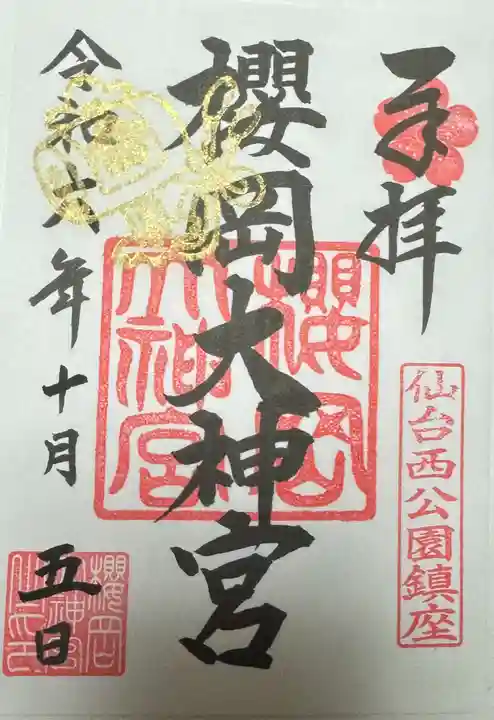 奉拝
仙台西公園鎮座
櫻岡大神宮
櫻岡
大神宮
令和六年十月五日
櫻岡
神宮